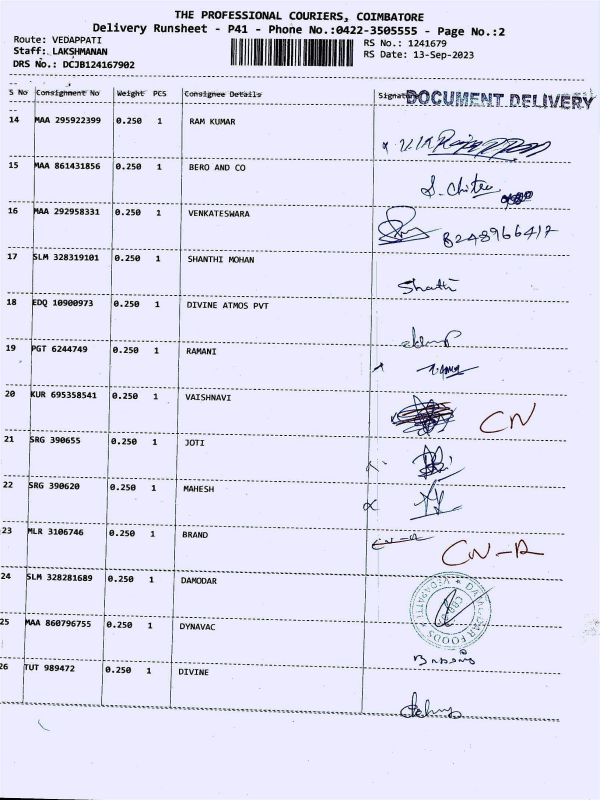 THE PROFESSIONAL COURIERS, COIMBATORE
Delivery Runsheet - P41 - Phone No.:0422-3505555 - Page No.:2
Route: VEDAPPATI RS No.: 1241679
Staff: LAKSHMANAN RS Date: 13-Sep-2023
DRS No.: DCJB124167902
S No Consignment No Weight PCS Consignee Details Signature
DOCUMENT DELIVERY
14 MAA 295922399 0.250 1 RAM KUMAR
15 MAA 861431856 0.250 1 BERO AND CO
S. Chitra
16 MAA 292958331 0.250 1 VENKATESWARA
8248966417
17 SLM 328319101 0.250 1 SHANTHI MOHAN
18 EDQ 10900973 0.250 1 DIVINE ATMOS PVT
19 PGT 6244749 0.250 1 RAMANI
20 KUR 695358541 0.250 1 VAISHNAVI
CN
21 SRG 390655 0.250 1 JOTI
22 SRG 390620 0.250 1 MAHESH
23 MLR 3106746 0.250 1 BRAND
CN-R
24 SLM 328281689 0.250 1 DAMODAR
25 MAA 860796755 0.250 1 DYNAVAC
26 TUT 989472 0.250 1 DIVINE